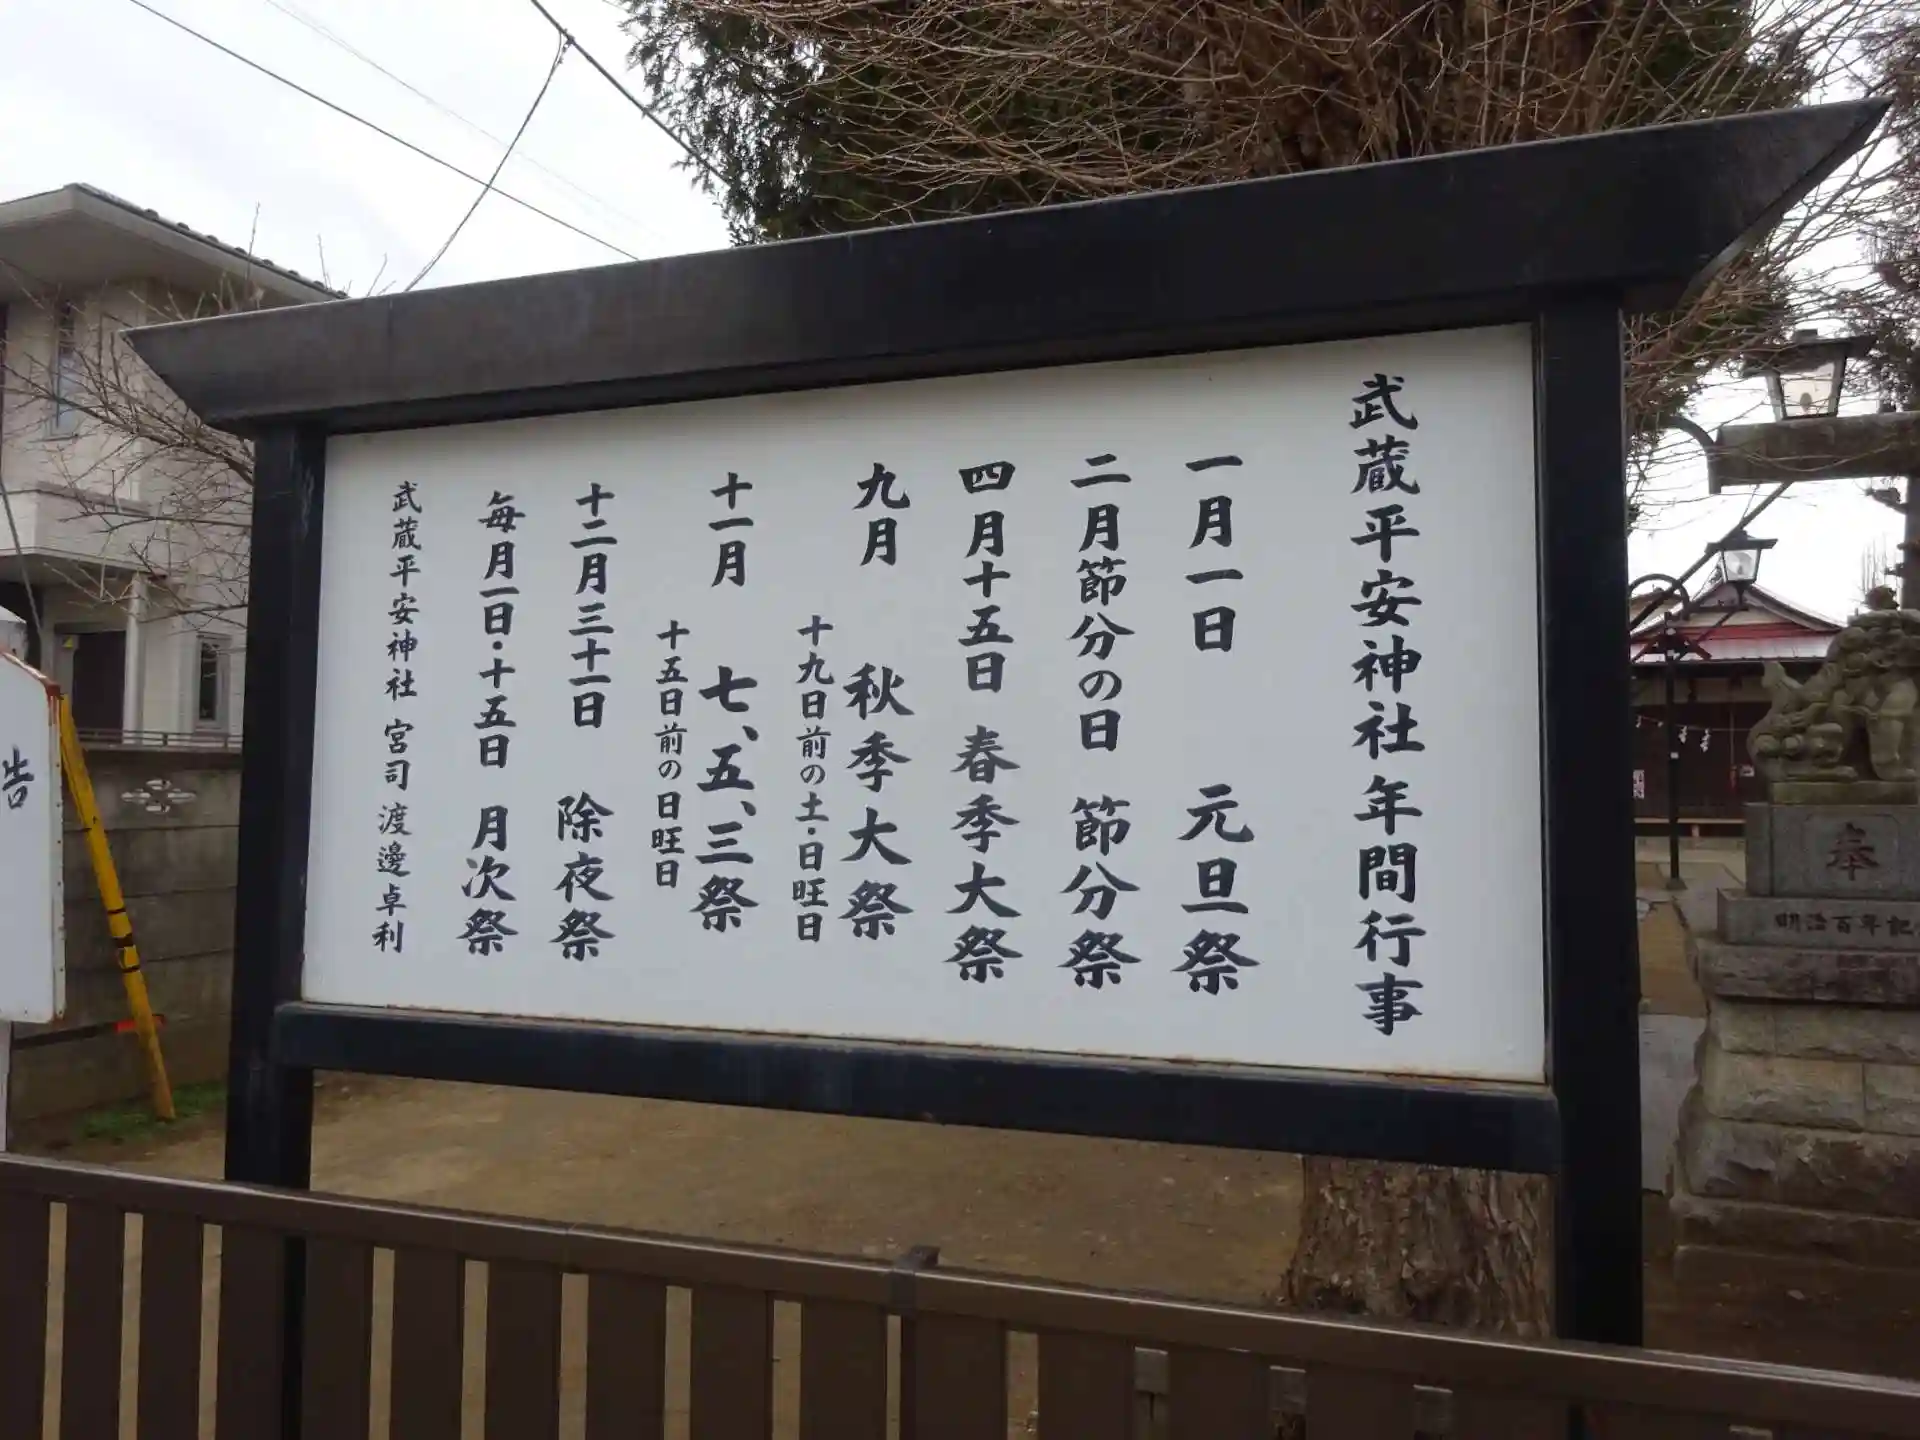 武蔵平安神社年間行事
一月一日 元旦祭
二月節分の日 節分祭
四月十五日 春季大祭
九月 秋季大祭
十九日前の土・日旺日
十一月 七、五、三祭
十五日前の日旺日
十二月三十一日 除夜祭
毎月一日・十五日 月次祭
武蔵平安神社 宮司 渡邊卓利
告
奉
明治百年記